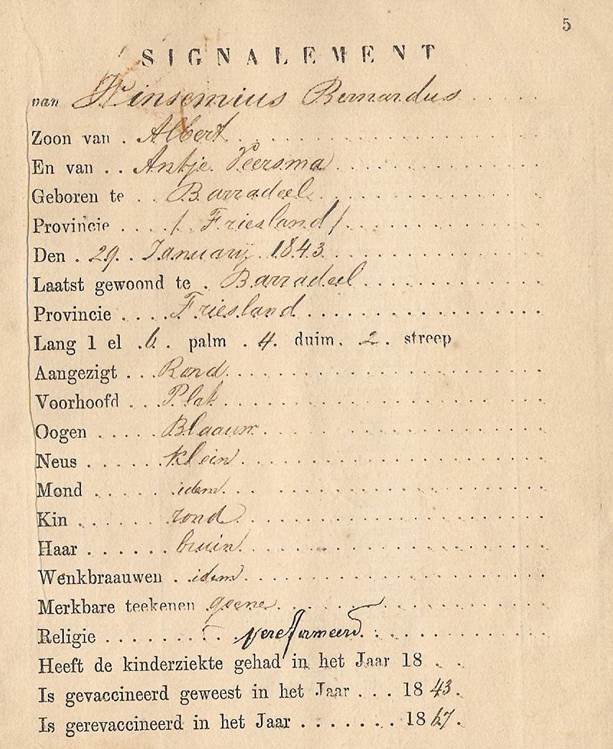 5
SIGNALEMENT
van Winsemius Bernardus
Zoon van Albert
En van Antje Peersma
Geboren te Barradeel
Provincie / Friesland /
Den 29 Januarij 1843
Laatst gewoond te Barradeel
Provincie Friesland
Lang 1 el 6 palm 4 duim 2 streep
Aangezigt Rond
Voorhoofd Plat
Oogen Blaauw
Neus klein
Mond idem
Kin rond
Haar bruin
Wenkbraauwen idem
Merkbare teekenen geene
Religie gereformeerd
Heeft de kinderziekte gehad in het Jaar 18
Is gevaccineerd geweest in het Jaar 1843.
Is gerevaccineerd in het Jaar 1867.